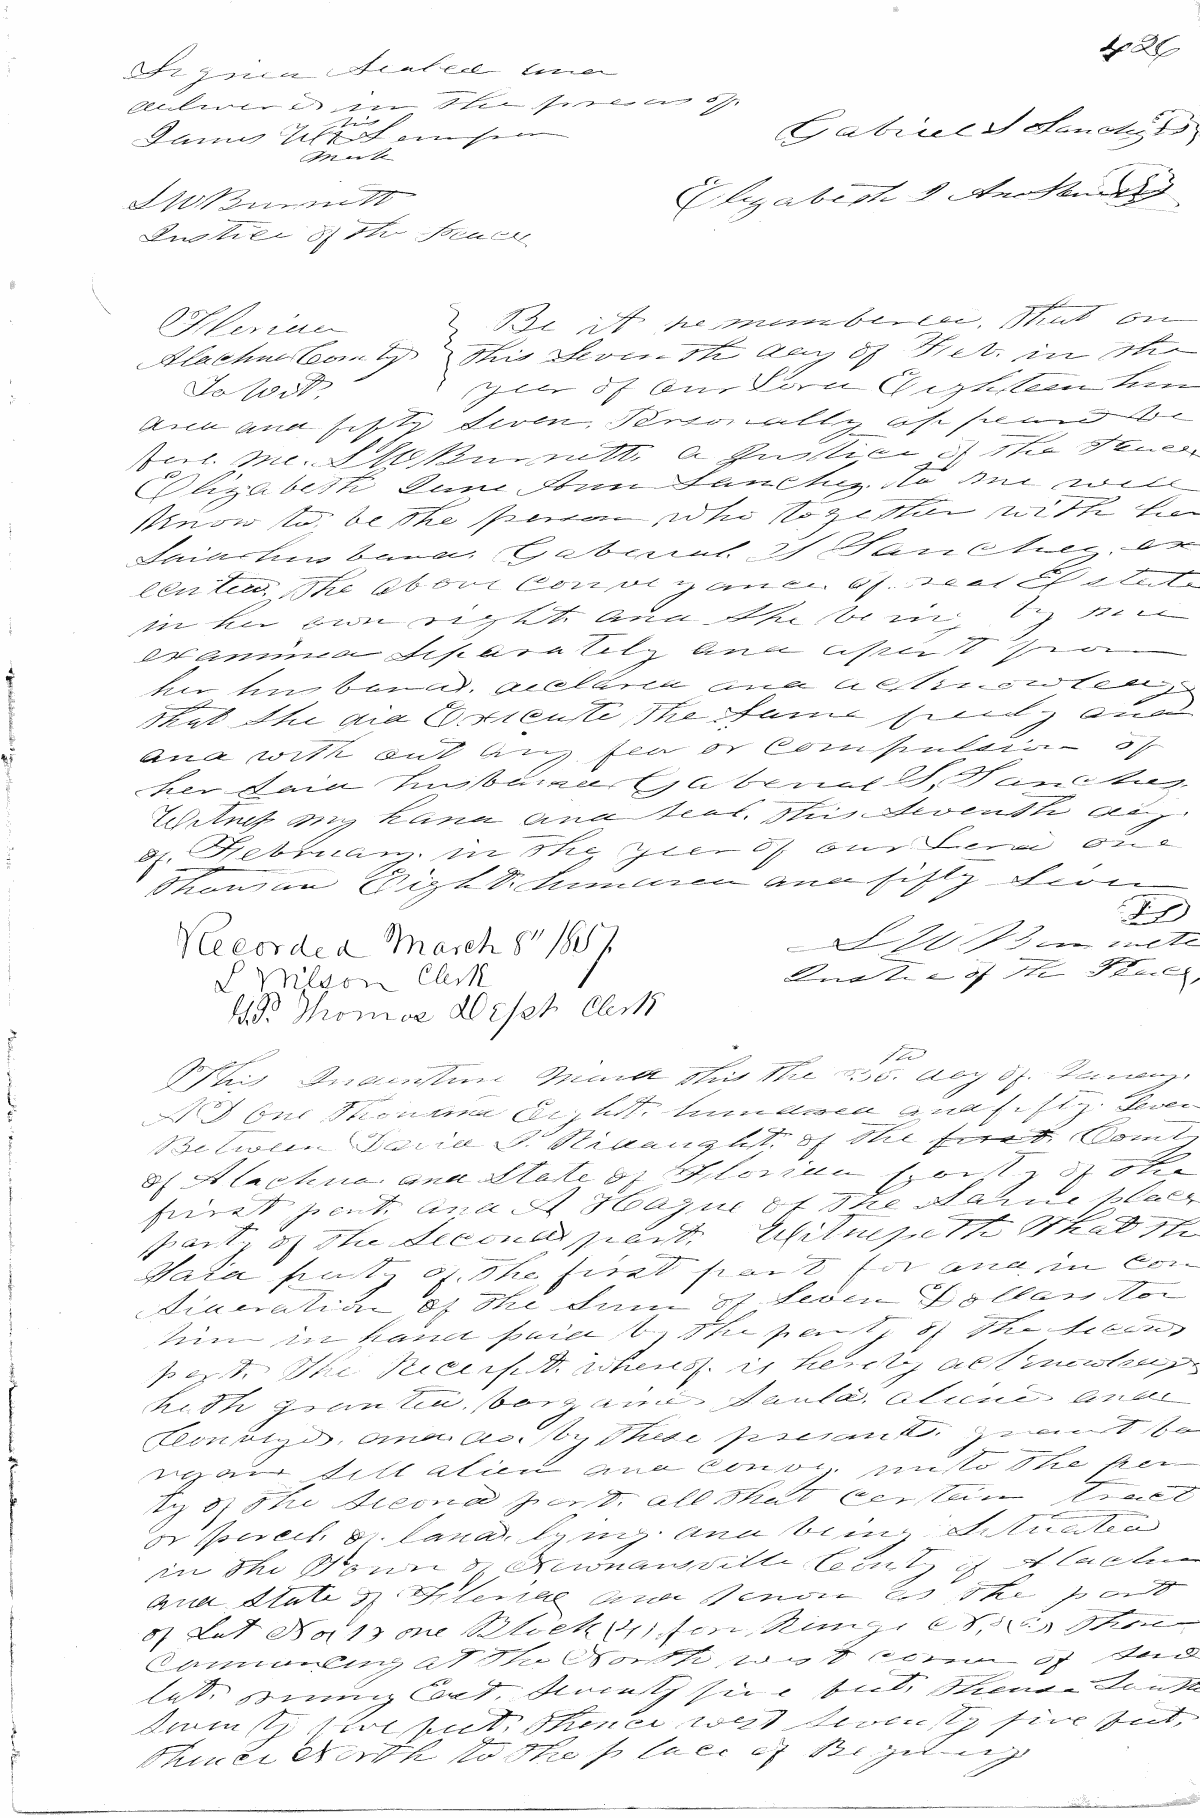 426
Signed Sealed and
delivered in the presens of
James W his X Sampson
mark
Gabriel S Sanchez LS
S W Burnett
Elizabeth J Ann
Justice of the Peace
Florida
Alachua County
To Wit.
Be it remembered. that on
this Seventh day of Feb. in the
year of our Lord Eighteen hun
dred and fifty Seven. Personally appeard be
fore me. S W Burnett. a Justice of the Peace
Elizabeth Jane Ann Sanchez. to me well
know to be the person who together with her
Said husband. Gaberial S Sanchez. ex
cented. the above conveyance of real Estate
in her own right. and she being by me
examined Seperately and apart from
her husband. declared and acknowledg
that she did Execute the Same freely and
and with out any fear or compulsion of
her Said husband Gaberial S. Sanches
Witness my hand and Seal. this Seventh day.
of. February. in the year of our Lord one
thousan Eight. hundred and fifty Seven
Recorded March 8" 1857.
L Wilson Clerk
G.P. Thomas Dept Clerk
LS
S W Burnett
Justice of the Peace,
This Indenture Maid this the day of.
A D One Thousand Eight. hundred and fifty Seven
Between David S. of the first. County
of Alachua and State of Florida party of the
first part. and A Hague of the Same place
party of the Second part. Witnesseth That the
Said party of the first part for and in con
sideration of the Sum of Seven Dollars to
him in hand paid by the party of the Second
part. the Receipt. whereof. is hereby acknowledg
hath granted. bargained Sauld. aliened and
Conveyed. and do. by these presants. graunt ba
rgain Sell alien and convey. unto the par
ty of the Second part. all that certain tract
or parcel of. land. lying. and being Situated
in the Town of Newnansville County of Alachua
and State of Florida and know as the part
of Lot No one Block (4) four, Range
Commencing at the North west corner of Said
lot. running East. Seventy five feet. thence South
Seventy five feet. thence west Seventy five feet.
thence North to the place of Begining